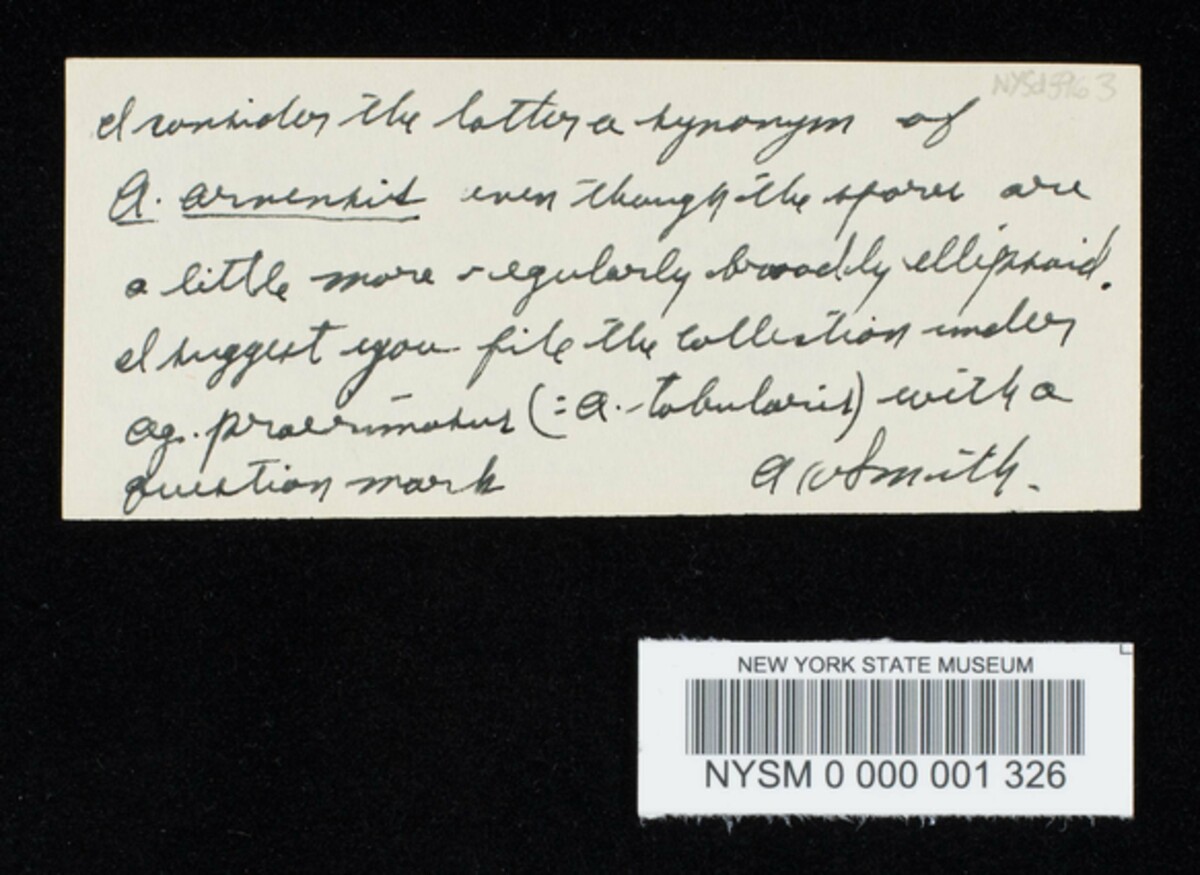 NYSd3963
I consider the latter a synonym of
A. arvensis even though the spores are
a little more regularly broadly ellipsoid.
I suggest you file the collection under
Ag. praerimosus (= A. tabularis) with a
question mark
A H Smith.
NEW YORK STATE MUSEUM
NYSM 0 000 001 326